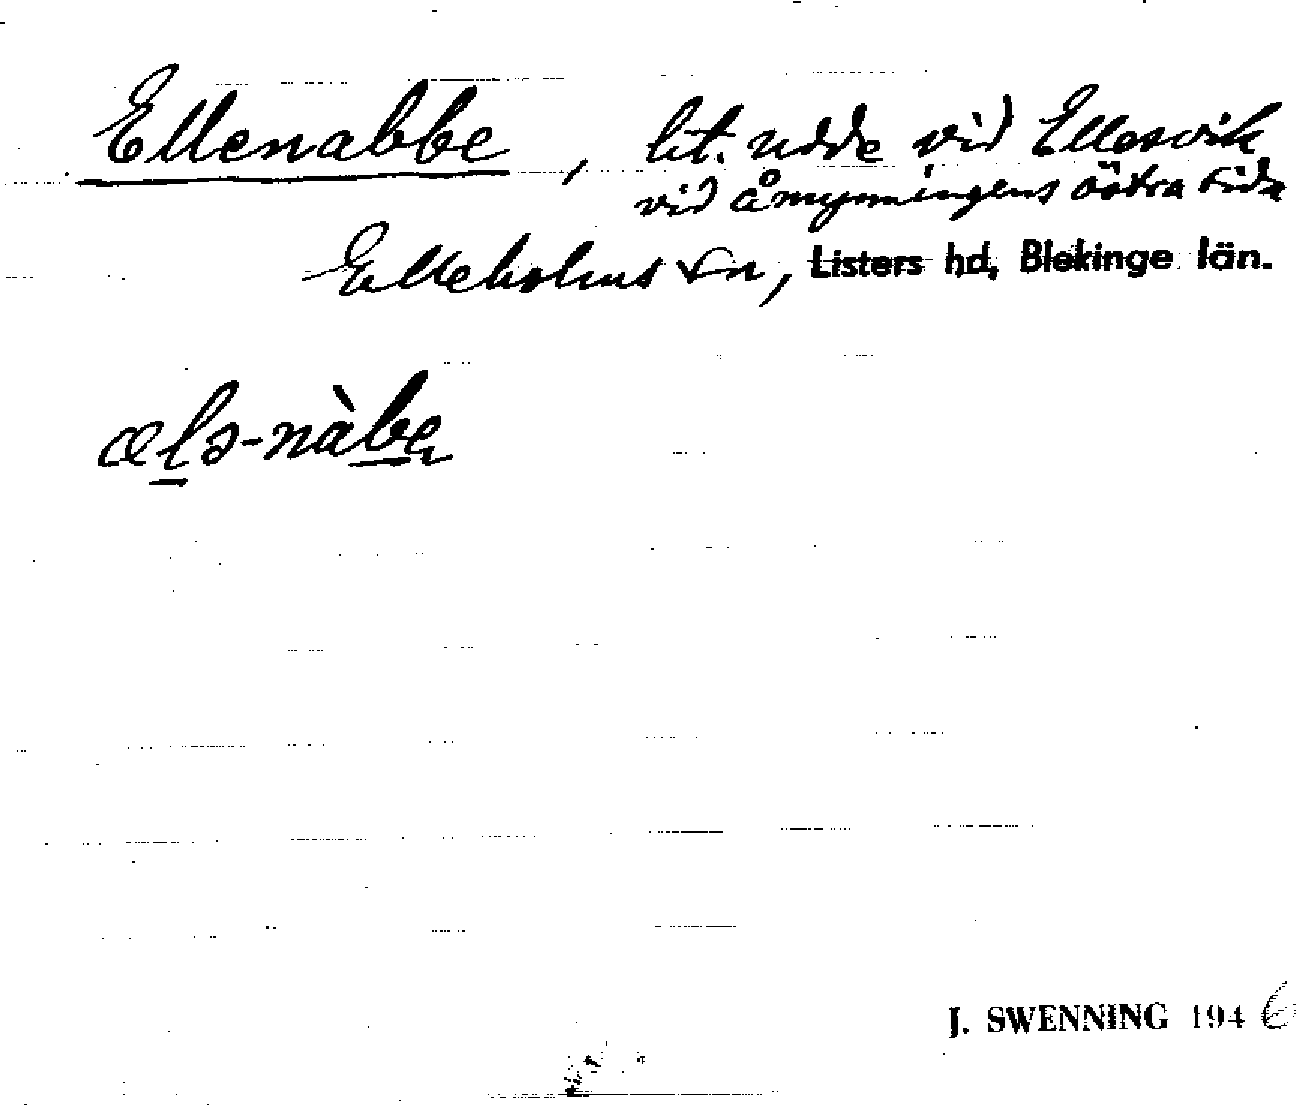 Ellenabbe, lit. udde vid Ellesvik
vid åmynningens östra sida
Elleholms sn, Listers hd, Blekinge län.
ælə-nàbe
J. SWENNING 1946